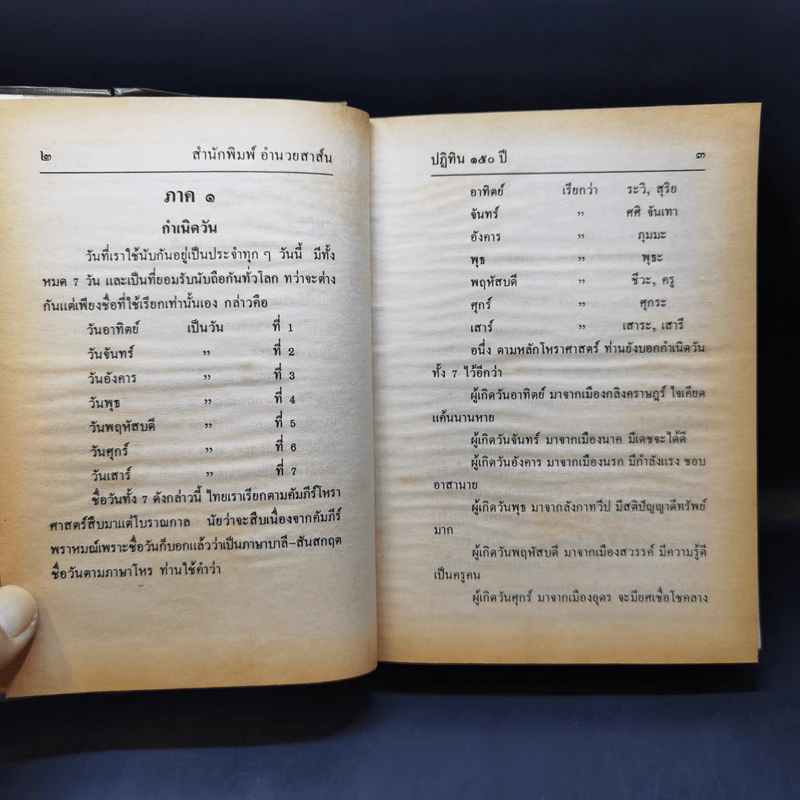 ๒ สำนักพิมพ์ อำนวยสาส์น
ภาค ๑
กำเนิดวัน
วันที่เราใช้นับกันอยู่เป็นประจำทุก ๆ วันนี้ มีทั้ง
หมด 7 วัน และเป็นที่ยอมรับนับถือกันทั่วโลก ทว่าจะต่าง
กันแต่เพียงชื่อที่ใช้เรียกเท่านั้นเอง กล่าวคือ
วันอาทิตย์ เป็นวัน ที่ 1
วันจันทร์ ,, ที่ 2
วันอังคาร ,, ที่ 3
วันพุธ ,, ที่ 4
วันพฤหัสบดี ,, ที่ 5
วันศุกร์ ,, ที่ 6
วันเสาร์ ,, ที่ 7
ชื่อวันทั้ง 7 ดังกล่าวนี้ ไทยเราเรียกตามคัมภีร์โหรา
ศาสตร์สืบมาแต่โบราณกาล นัยว่าจะสืบเนื่องจากคัมภีร์
พราหมณ์เพราะชื่อวันก็บอกแล้วว่าเป็นภาษาบาลี-สันสกฤต
ชื่อวันตามภาษาโหร ท่านใช้คำว่า
ปฏิทิน ๑๕๐ ปี ๓
อาทิตย์ เรียกว่า ระวิ, สุริย
จันทร์ ,, ศศิ จันเทา
อังคาร ,, ภุมมะ
พุธ ,, พุธะ
พฤหัสบดี ,, ชีวะ, ครู
ศุกร์ ,, ศุกระ
เสาร์ ,, เสาระ, เสารี
อนึ่ง ตามหลักโหราศาสตร์ ท่านยังบอกกำเนิดวัน
ทั้ง 7 ไว้อีกว่า
ผู้เกิดวันอาทิตย์ มาจากเมืองกลิงคราษฎร์ ใจเคียด
แค้นนานหาย
ผู้เกิดวันจันทร์ มาจากเมืองนาค มีเดชจะได้ดี
ผู้เกิดวันอังคาร มาจากเมืองนรก มีกำลังแรง ชอบ
อาสานาย
ผู้เกิดวันพุธ มาจากลังกาทวีป มีสติปัญญาดีทรัพย์
มาก
ผู้เกิดวันพฤหัสบดี มาจากเมืองสวรรค์ มีความรู้ดี
เป็นครูคน
ผู้เกิดวันศุกร์ มาจากเมืองอุดร จะมียศเชื่อโชคลาง